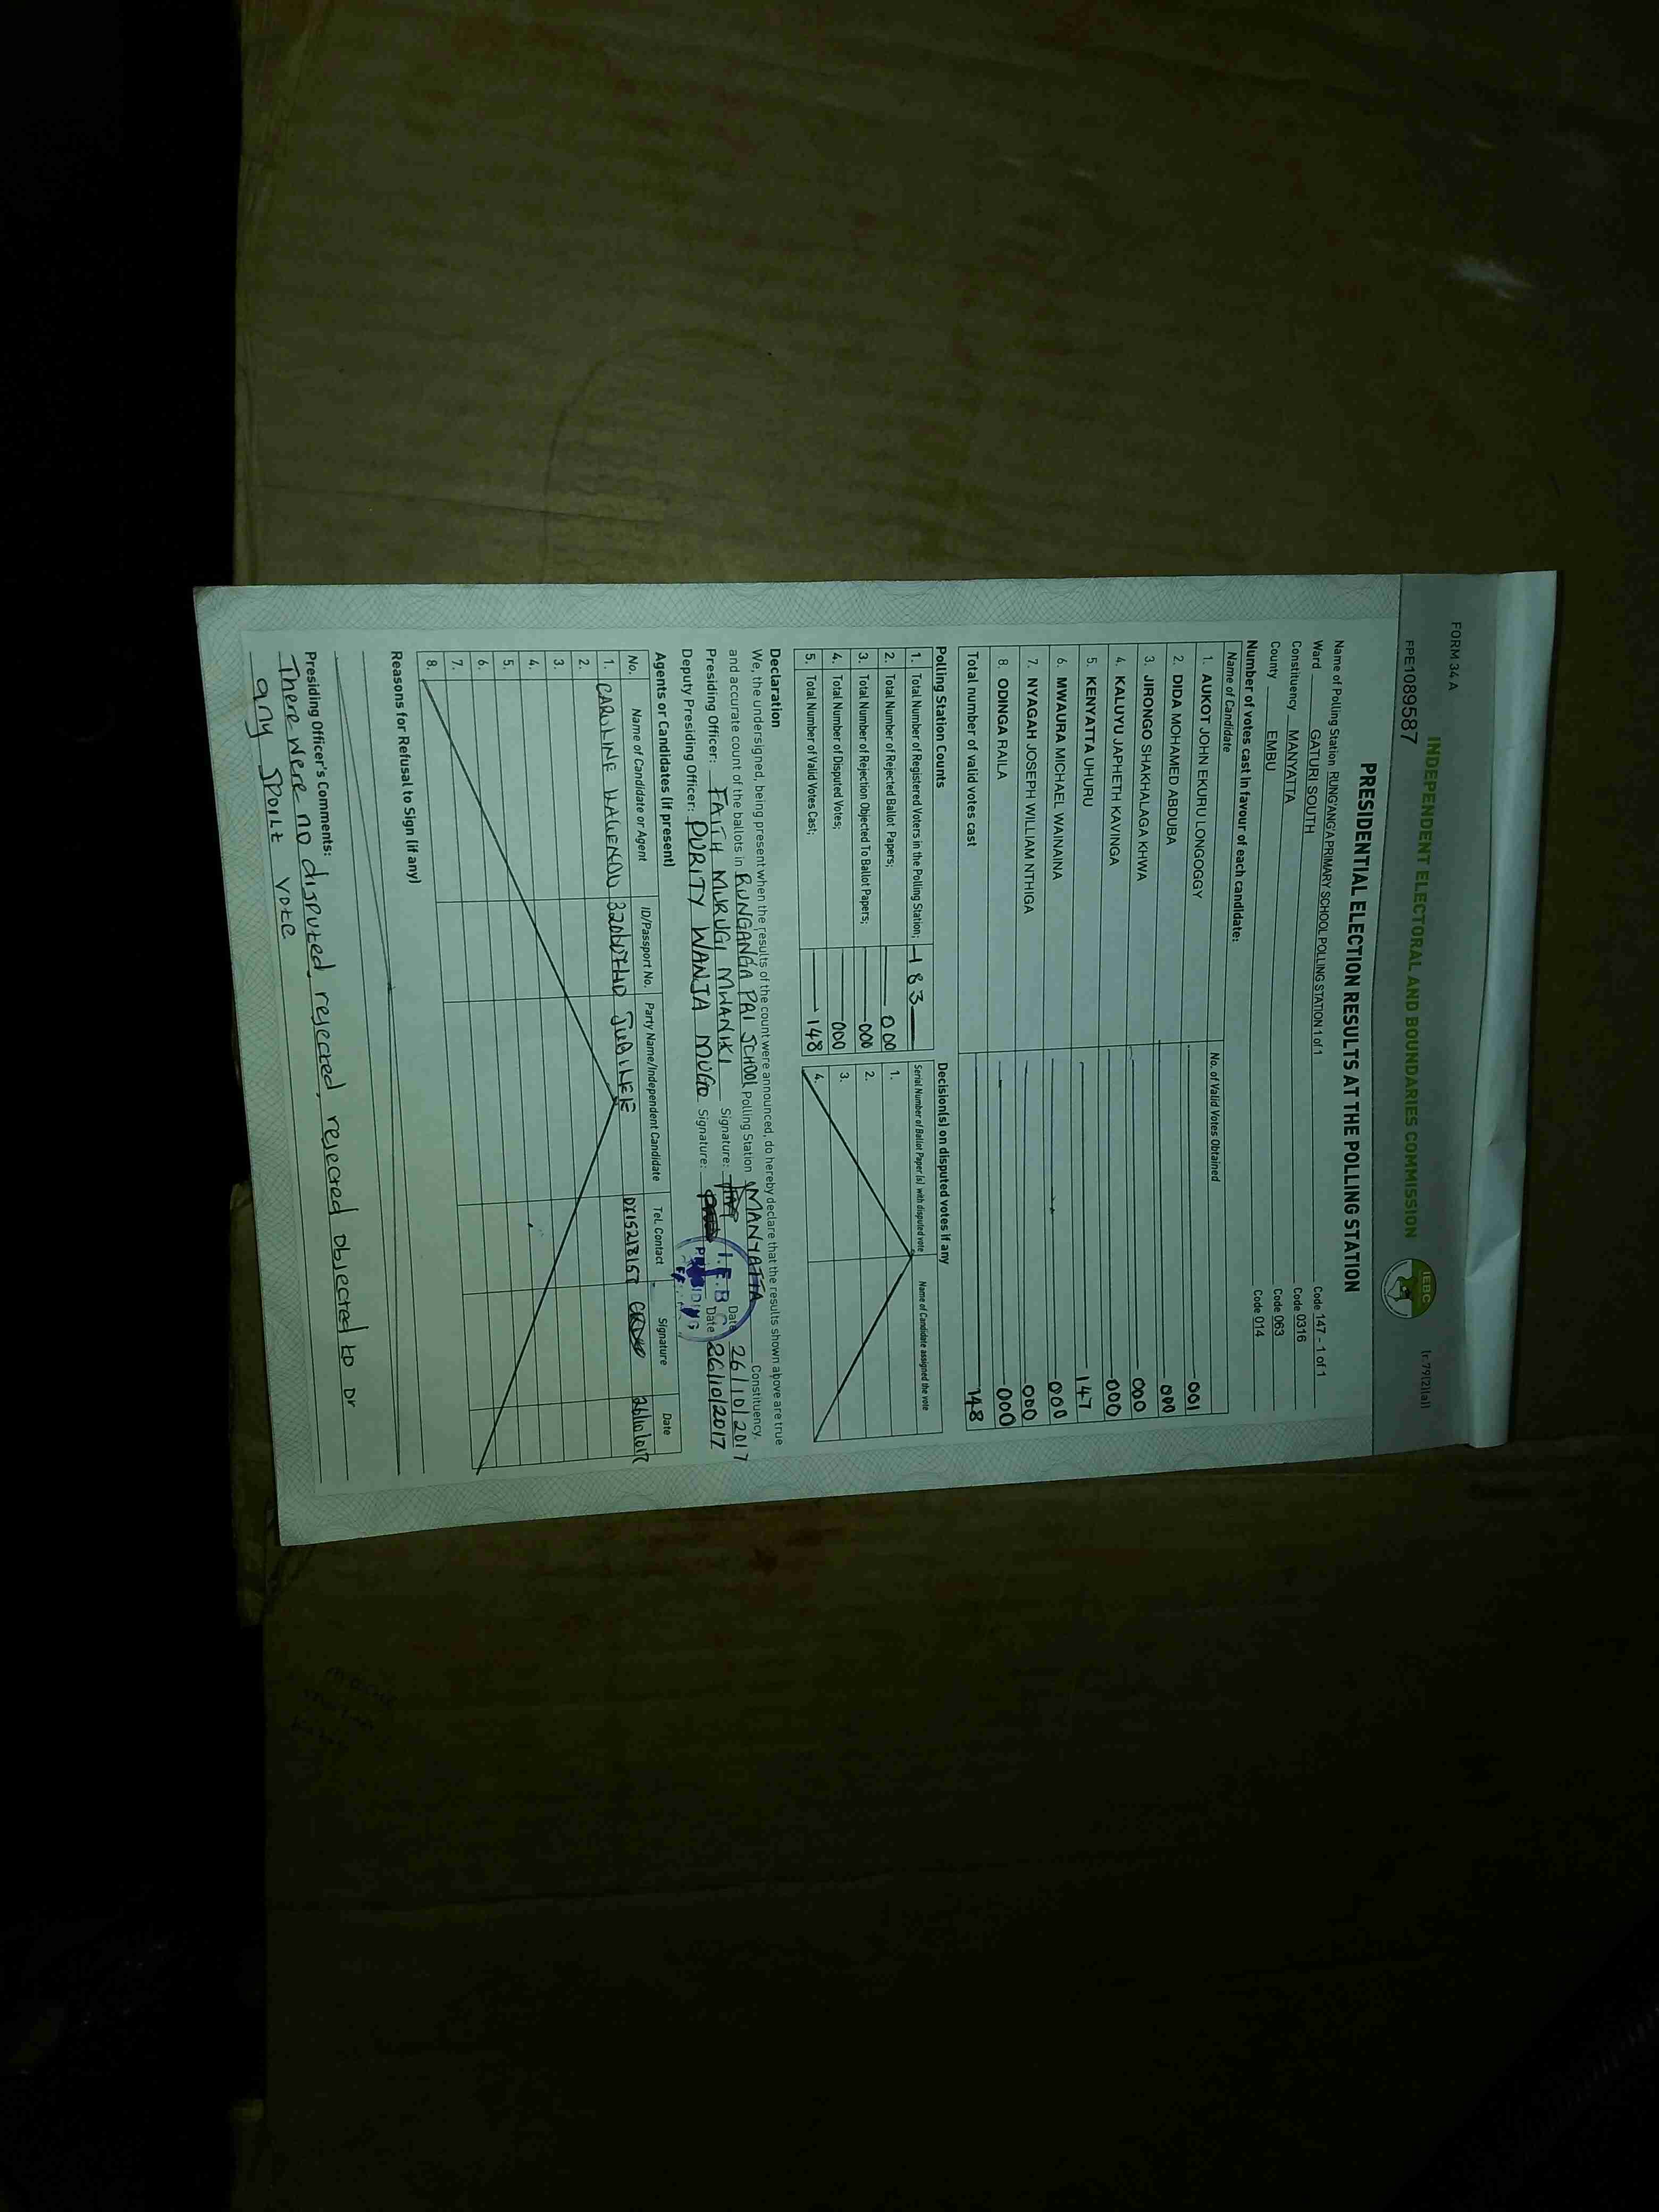 FORM 34 A
(r.79(2)(a))
INDEPENDENT ELECTORAL AND BOUNDARIES COMMISSION
IEBC
FPE1089587
PRESIDENTIAL ELECTION RESULTS AT THE POLLING STATION
Name of Polling Station RUNG'ANG'A PRIMARY SCHOOL POLLING STATION 1 of 1 Code 147 - 1 of 1
Ward GATURI SOUTH Code 0316
Constituency MANYATTA Code 063
County EMBU Code 014
Number of votes cast in favour of each candidate:
Name of Candidate No. of Valid Votes Obtained
1. AUKOT JOHN EKURU LONGOGGY 001
2. DIDA MOHAMED ABDUBA 000
3. JIRONGO SHAKHALAGA KHWA 000
4. KALUYU JAPHETH KAVINGA 000
5. KENYATTA UHURU 147
6. MWAURA MICHAEL WAINAINA 000
7. NYAGAH JOSEPH WILLIAM NTHIGA 000
8. ODINGA RAILA 000
Total number of valid votes cast 148
Polling Station Counts
1. Total Number of Registered Voters in the Polling Station; 183
2. Total Number of Rejected Ballot Papers; 000
3. Total Number of Rejection Objected To Ballot Papers; 000
4. Total Number of Disputed Votes; 000
5. Total Number of Valid Votes Cast; 148
Decision(s) on disputed votes if any
Serial Number of Ballot Paper (s) with disputed vote Name of Candidate assigned the vote
1.
2.
3.
4.
Declaration
We, the undersigned, being present when the results of the count were announced, do hereby declare that the results shown above are true
and accurate count of the ballots in RUNGANGA PRI SCHOOL Polling Station MANYATTA Constituency.
Presiding Officer: FAITH MURUGI MWANIKI Signature: Date 26/10/2017
Deputy Presiding Officer: PURITY WANJA MUGO Signature: Date 26/10/2017
I.E.B.C
Agents or Candidates (if present)
No. Name of Candidate or Agent ID/Passport No. Party Name/Independent Candidate Tel. Contact Signature Date
1. CAROLINE JUBILEE
2.
3.
4.
5.
6.
7.
8.
Reasons for Refusal to Sign (if any)
Presiding Officer's Comments:
There were no disputed, rejected, rejected objected to or
any spoilt vote